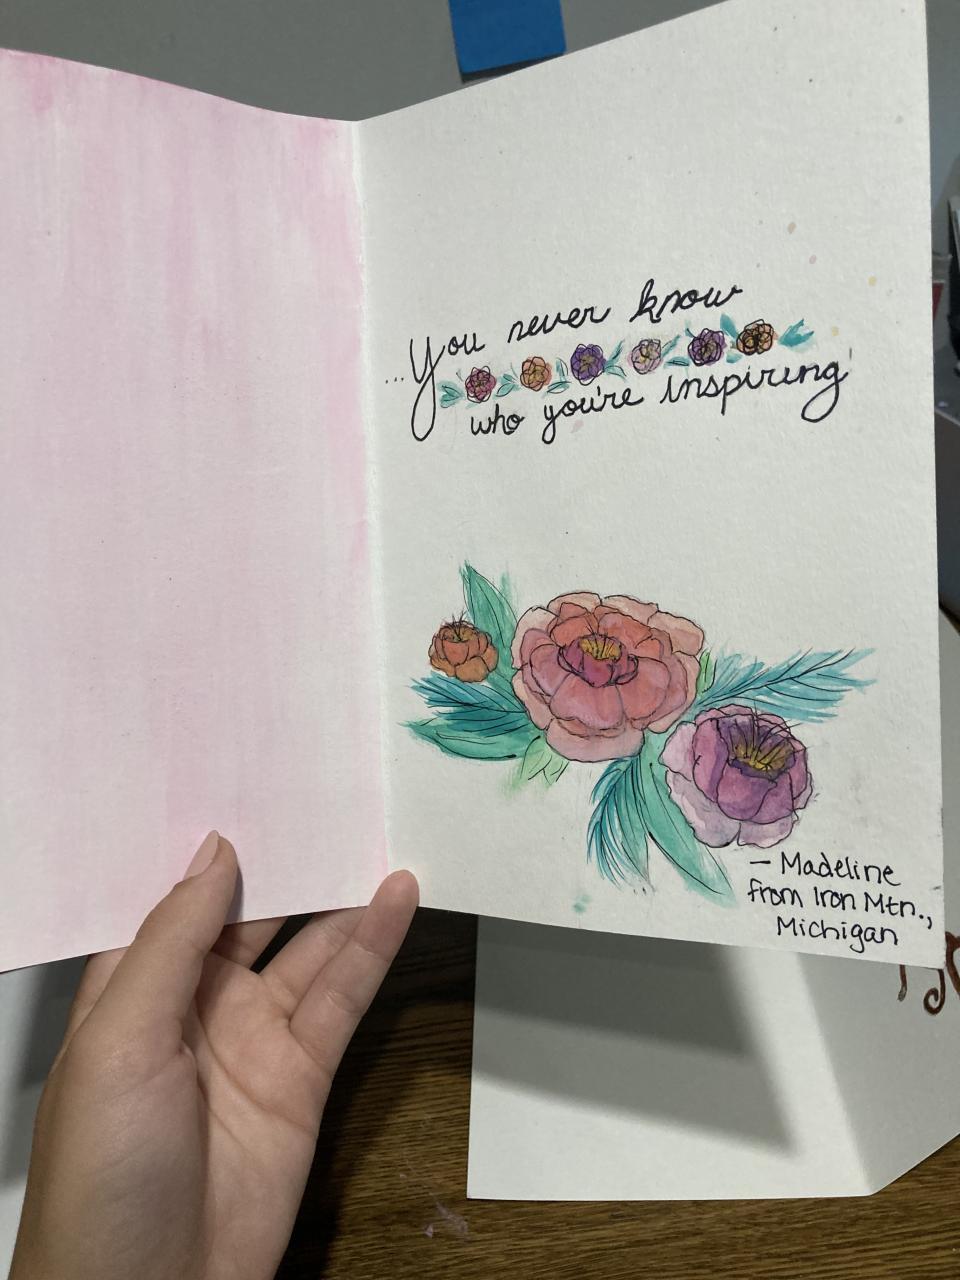 ...You never know
who you're inspiring
- Madeline
from Iron Mtn.,
Michigan